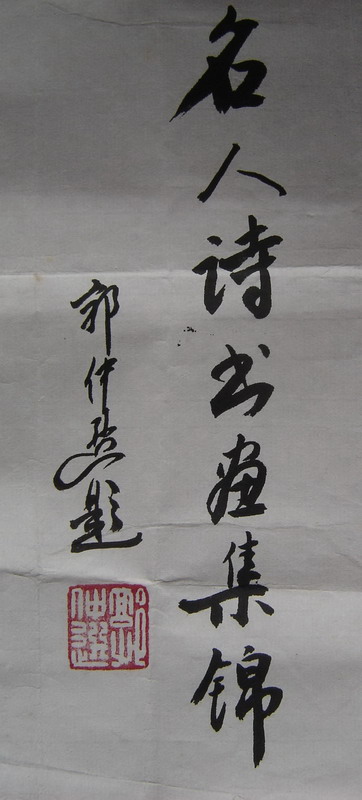 名人诗书画集锦
郭仲选题
郭仲選